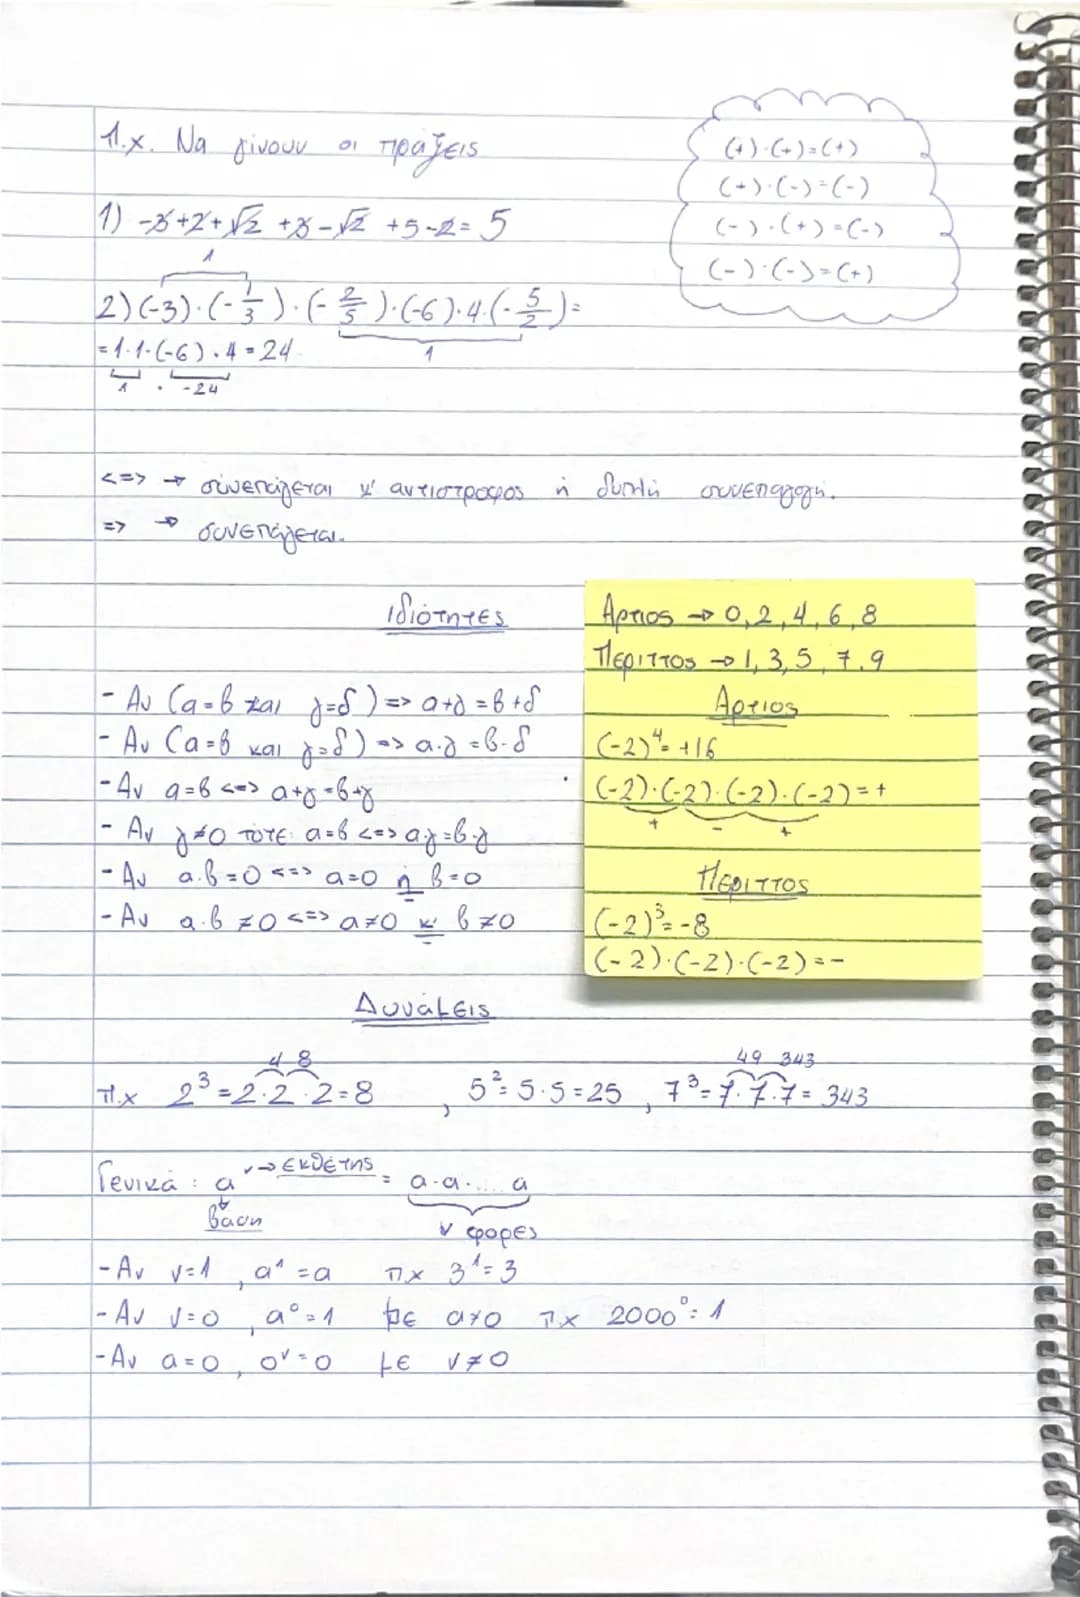 π.χ. Να γίνουν οι πράξεις
(+)·(+)=(+)
(+)·(-)=(-)
(-)·(+)=(-)
(-)·(-)=(+)
1) -3+2+√2 +3-√2 +5-2= 5
1
2) (-3)·(-1/3)·(-2/5)·(-6)·4·(-5/2)=
1
=1·1·(-6)·4=24
1 · -24
<=> → συνεπάγεται κ' αντιστρόφως ή διπλή συνεπαγωγή.
=> → συνεπάγεται.
Ιδιότητες
- Αν (α=β και γ=δ) => α+γ=β+δ
- Αν (α=β και γ=δ) => α·γ=β·δ
- Αν α=β <=> α+γ=β+γ
- Αν γ≠0 τότε: α=β <=> αγ=β·γ
- Αν α·β=0 <=> α=0 ή β=0
- Αν α·β≠0 <=> α≠0 κ' β≠0
Άρτιος → 0, 2, 4, 6, 8
Περιττός → 1, 3, 5, 7, 9
Άρτιος
(-2)⁴= +16
(-2)·(-2)·(-2)·(-2)=+
+ - +
Περιττός
(-2)³=-8
(-2)·(-2)·(-2)=-
Δυνάμεις
4 8 49 343
π.χ 2³=2·2·2=8 , 5²=5·5=25 , 7³=7·7·7= 343
Γενικά: α ν→εκθέτης = α·α·... α
βάση ν φορές
- Αν ν=1 , α¹=α πχ 3¹=3
- Αν ν=0 , α⁰=1 με α≠0 πχ 2000⁰=1
- Αν α=0 , 0ᵛ=0 με ν≠0